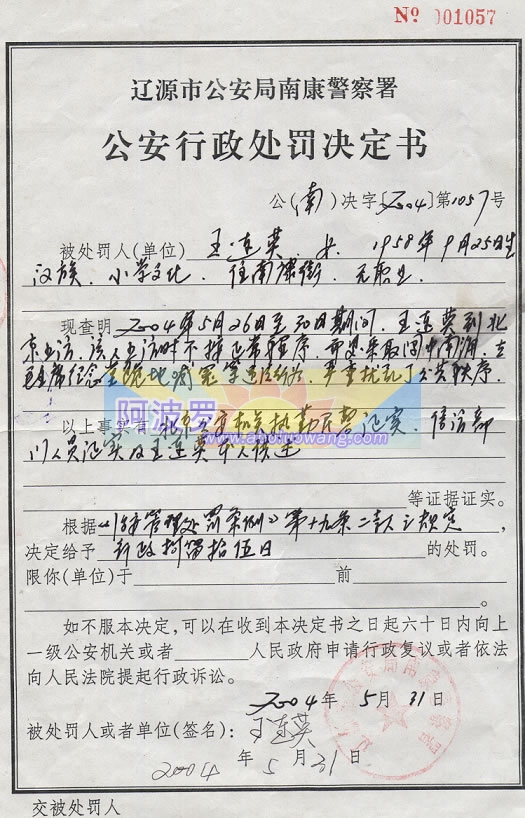 № 001057
辽源市公安局南康警察署
公安行政处罚决定书
公(南)决字[2004]第1057号
被处罚人(单位) 王连英、女、1958年9月25日生
汉族、小学文化、住南康街、无职业
现查明 2004年5月26日至30日期间,王连英到北
京上访,该人上访时不按正常程序,而是采取闯中南海、去
毛主席纪念堂 严重扰乱了公共秩序.
以上事实有 北京公安机关执勤民警证实、信访部
门人员证实及王连英本人供述
等证据证实。
根据《治安管理处罚条例》第十九条二款之规定,
决定给予 行政拘留拾伍日 的处罚。
限你(单位)于 前
。
如不服本决定,可以在收到本决定书之日起六十日内向上
一级公安机关或者 人民政府申请行政复议或者依法
向人民法院提起行政诉讼。
2004年5月31日
被处罚人或者单位(签名): 王连英
2004年5月31日
交被处罚人
阿波罗
www.aboluowang.com